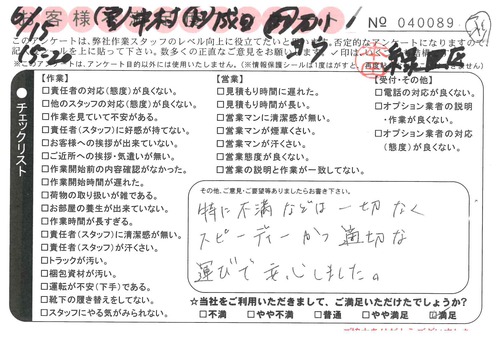 客様
№ 040089
このアンケートは、弊社作業スタッフのレベル向上に役立てたいと
否定的なアンケートになりますので
※このアンケートは、アンケート目的以外には使用いたしません。(※情報保護シール
チェックリスト
【作業】
□責任者の対応(態度)が良くない。
□他のスタッフの対応(態度)が良くない。
□作業を見ていて不安がある。
□責任者(スタッフ)に好感が持てない。
□お客様への挨拶が出来ていない。
□ご近所への挨拶・気遣いが無い。
□作業開始前の内容確認がなかった。
□作業開始時間が遅れた。
□荷物の取り扱いが雑である。
□お部屋の養生が出来ていない。
□作業時間が長すぎる。
□責任者(スタッフ)に清潔感が無い。
□責任者(スタッフ)が汗くさい。
□トラックが汚い。
□梱包資材が汚い。
□運転が不安(下手)である。
□靴下の履き替えをしてない。
□スタッフにやる気がみられない。
【営業】
□見積もり時間に遅れた。
□見積もり時間が長い。
□営業マンに清潔感が無い。
□営業マンが煙草くさい。
□営業マンが汗くさい。
□営業態度が良くない。
□営業の説明と作業が一致してない。
【受付・その他】
□電話の対応が良くない。
□オプション業者の説明
・作業が良くない。
□オプション業者の対応
(態度)が良くない。
その他、ご意見・ご要望等ありましたらお書き下さい。
特に不満などは一切なく
スピーディーかつ適切な
運びで安心しました。
☆当社をご利用いただきまして、ご満足いただけたでしょうか?
□不満 □やや不満 □普通 □やや満足 ☑満足